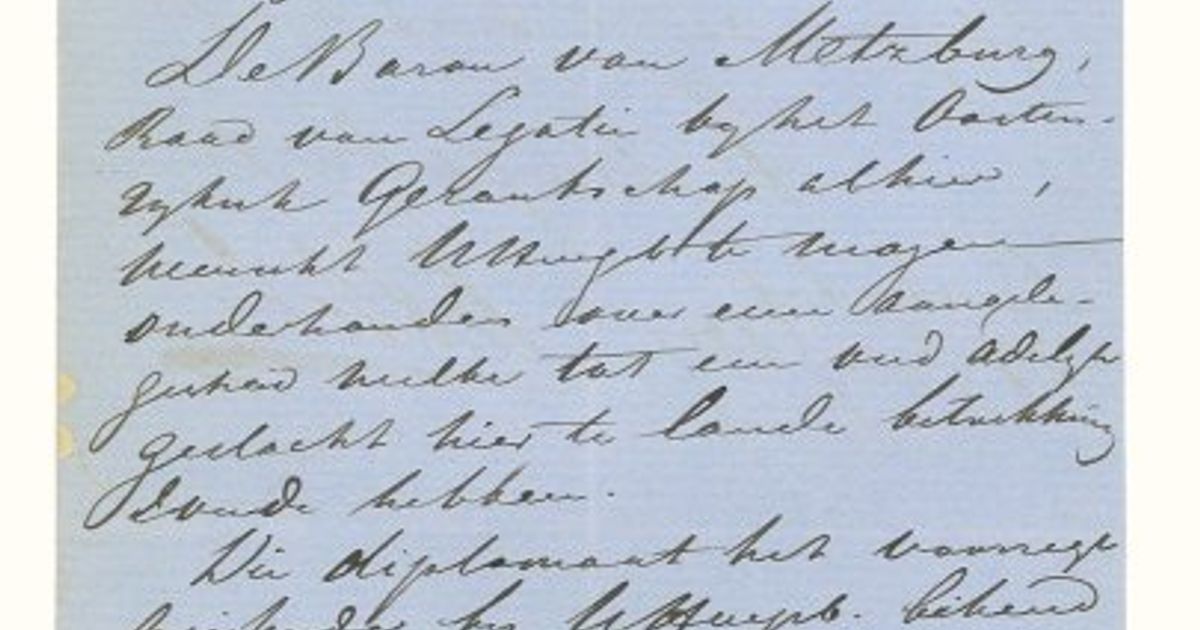 De Baron van Metzburg,
Raad van Legatie by het Oosten-
rykuk Gezantschap alhier,
wenscht UHWgeb te mogen
onderhouden over eene aangele-
genheid welke tot een oud adelyk
geslacht hier te lande betrekking
zoude hebben.
Die diplomaat het voorregt
by UHWgeb. bekend